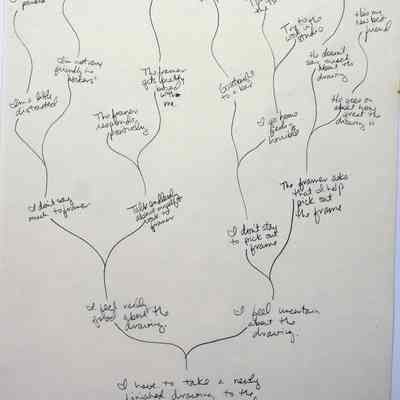 the
Try to
work in
studio
He's my
new best
friend
I'm not very
friendly
The framer
gets pretty
bored
with
me.
He doesn't
say much
about the
drawing
I'm a little
distracted
The framer
responds
positively
to a bar
I go home
feeling
horrible
He goes on
about how
great the
drawing is
I don't say
much to framer
Talk endlessly
about myself
work to
framer
The framer asks
that I help
pick out
the frame
I don't stay
to pick out
frame
I feel really
good about the
drawing.
I feel uncertain
about the
drawing.
I have to take a newly
finished drawing to the